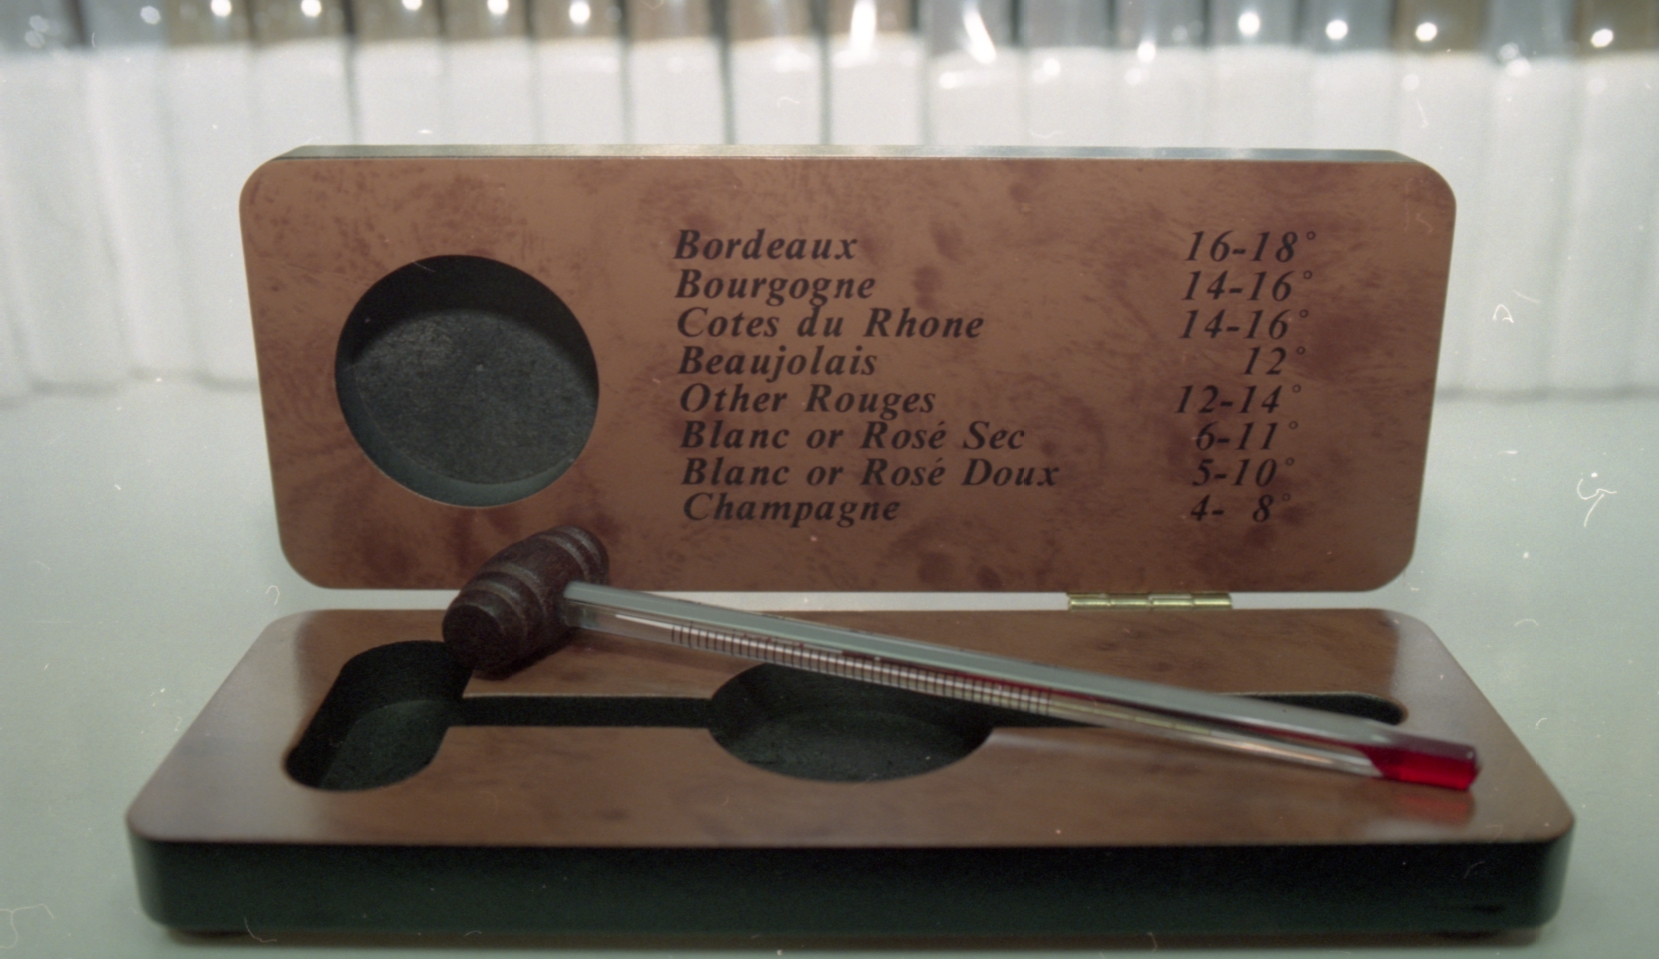 Bordeaux 16-18°
Bourgogne 14-16°
Cotes du Rhone 14-16°
Beaujolais 12°
Other Rouges 12-14°
Blanc or Rosé Sec 6-11°
Blanc or Rosé Doux 5-10°
Champagne 4- 8°